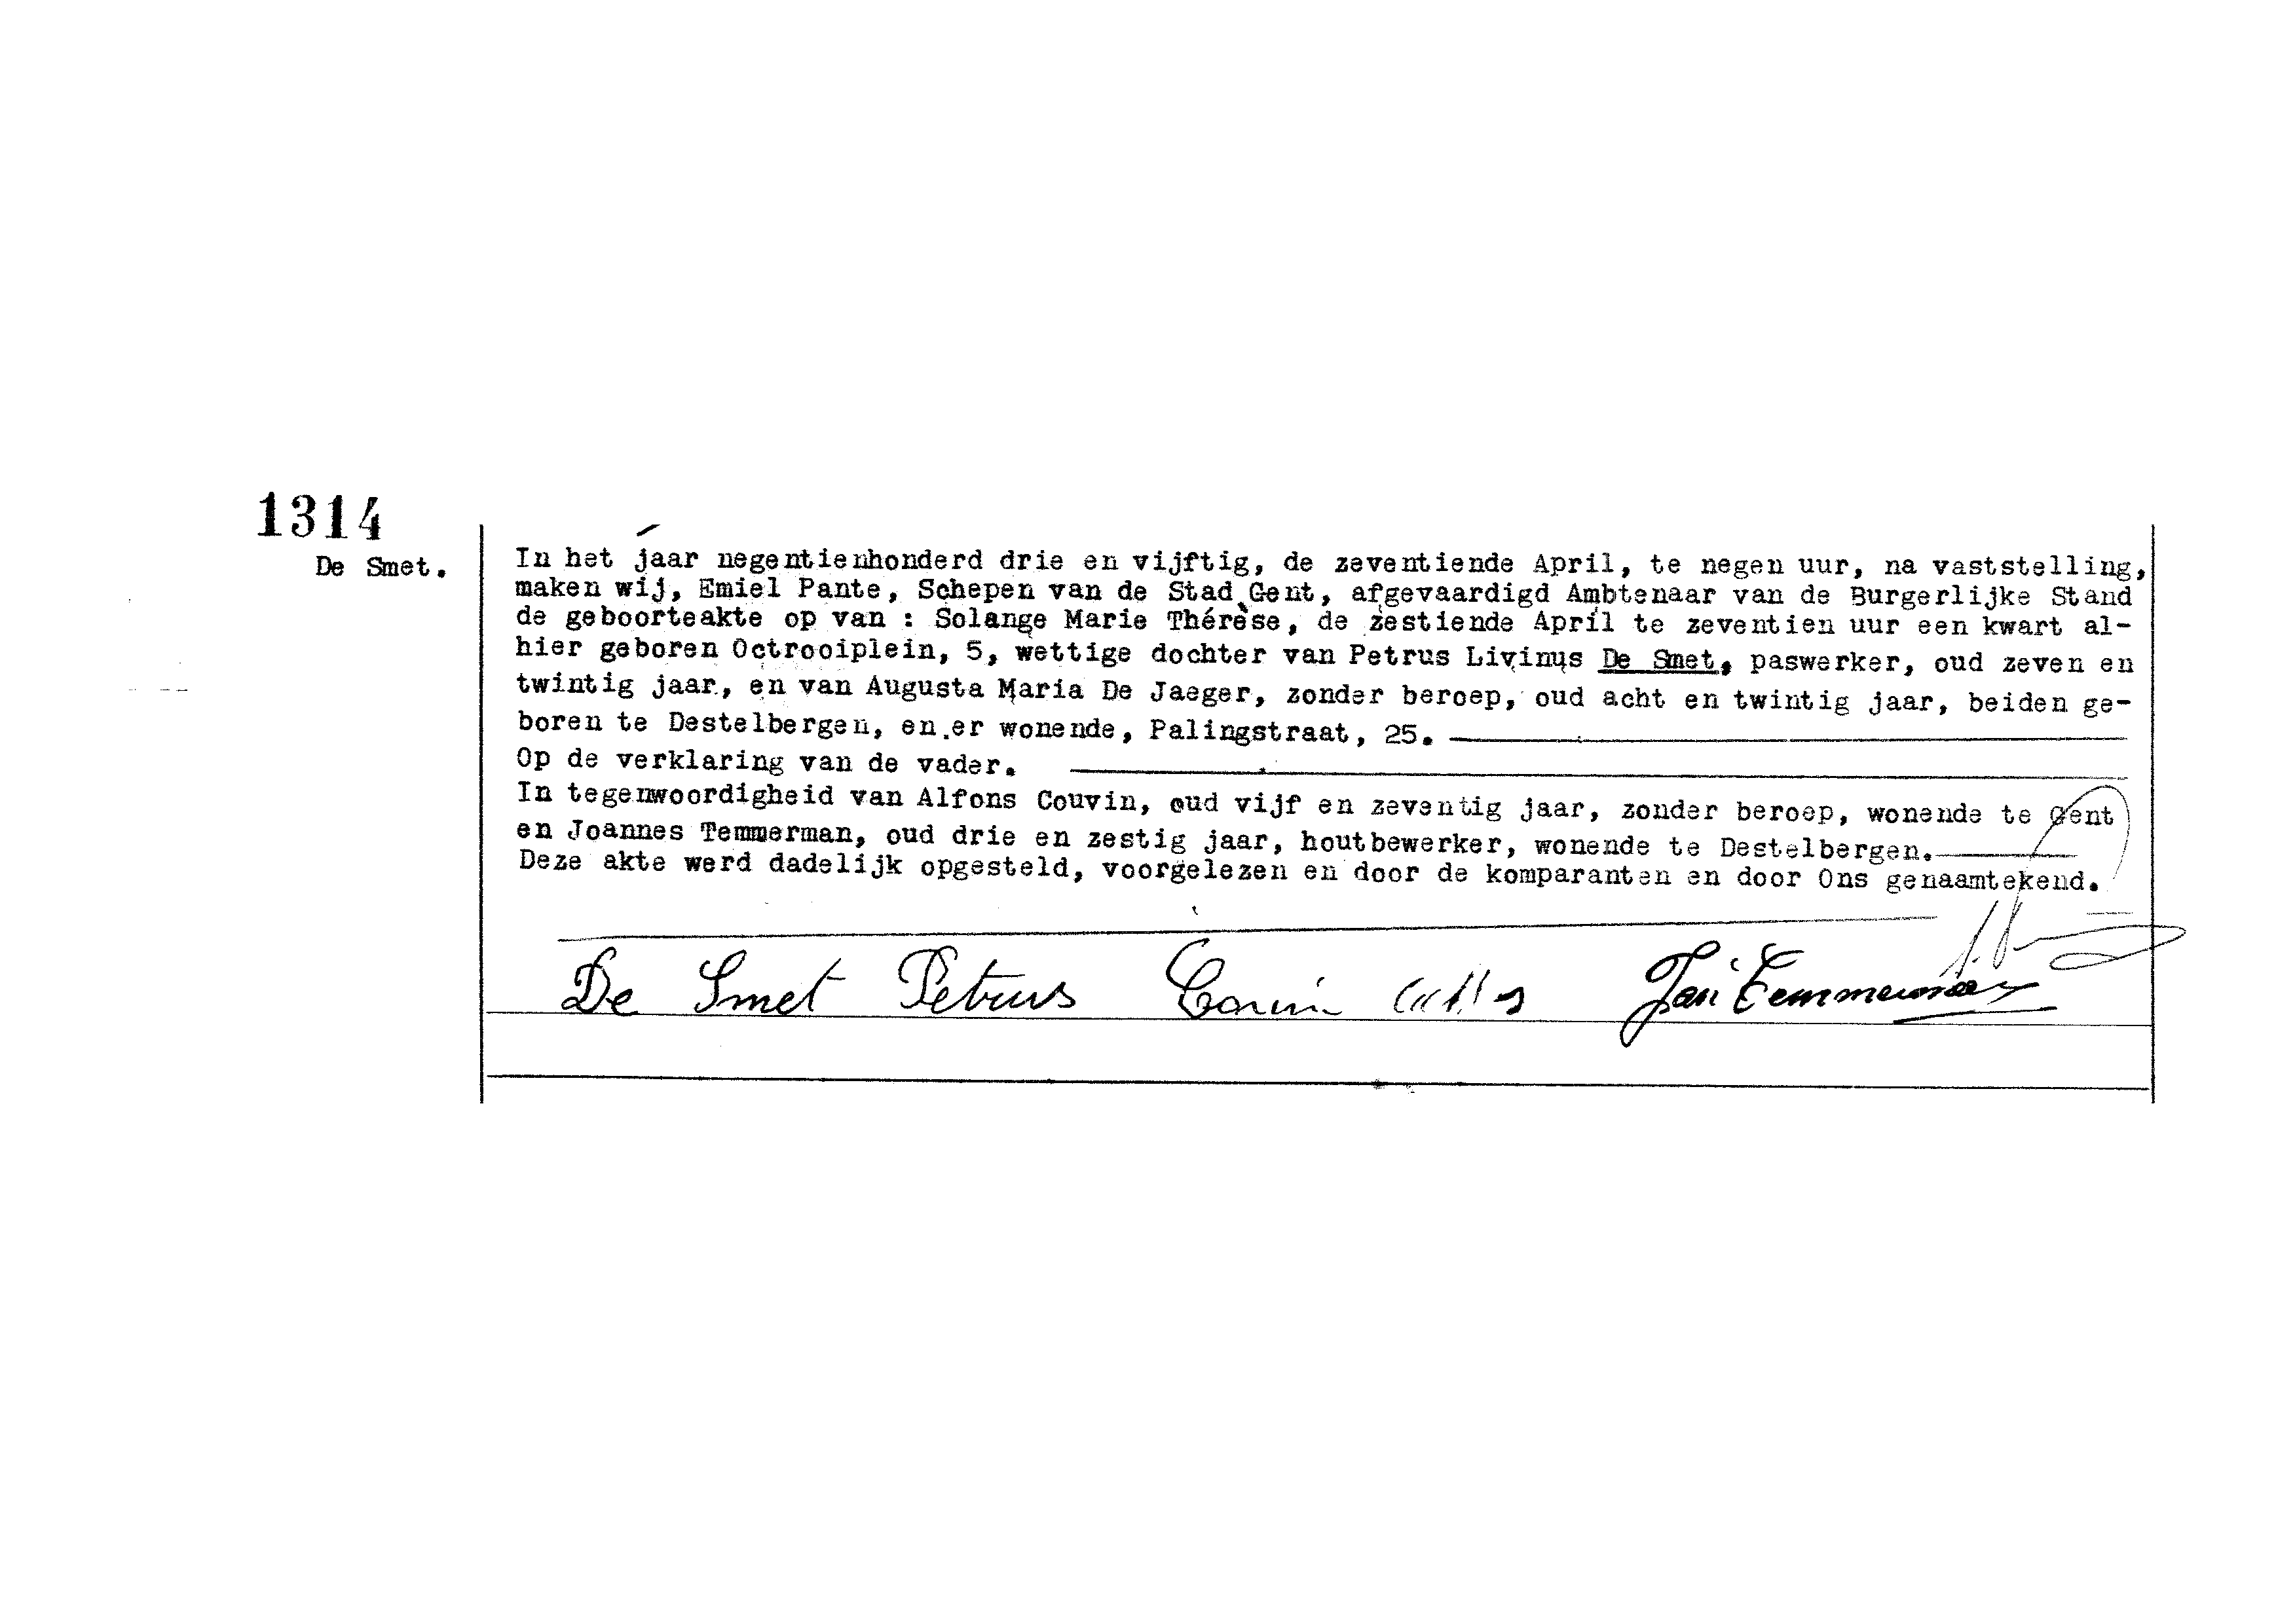 1314
De Smet.
In het jaar negentienhonderd drie en vijftig, de zeventiende April, te negen uur, na vaststelling,
maken wij, Emiel Pante, Schepen van de Stad Gent, afgevaardigd Ambtenaar van de Burgerlijke Stand
de geboorteakte op van : Solange Marie Thérèse, de zestiende April te zeventien uur een kwart al-
hier geboren Octrooiplein, 5, wettige dochter van Petrus Livinus De Smet, paswerker, oud zeven en
twintig jaar, en van Augusta Maria De Jaeger, zonder beroep, oud acht en twintig jaar, beiden ge-
boren te Destelbergen, en er wonende, Palingstraat, 25.
Op de verklaring van de vader.
In tegenwoordigheid van Alfons Couvin, oud vijf en zeventig jaar, zonder beroep, wonende te Gent
en Joannes Temmerman, oud drie en zestig jaar, houtbewerker, wonende te Destelbergen.
Deze akte werd dadelijk opgesteld, voorgelezen en door de komparanten en door Ons genaamtekend.
De Smet Petrus Jan Temmerman